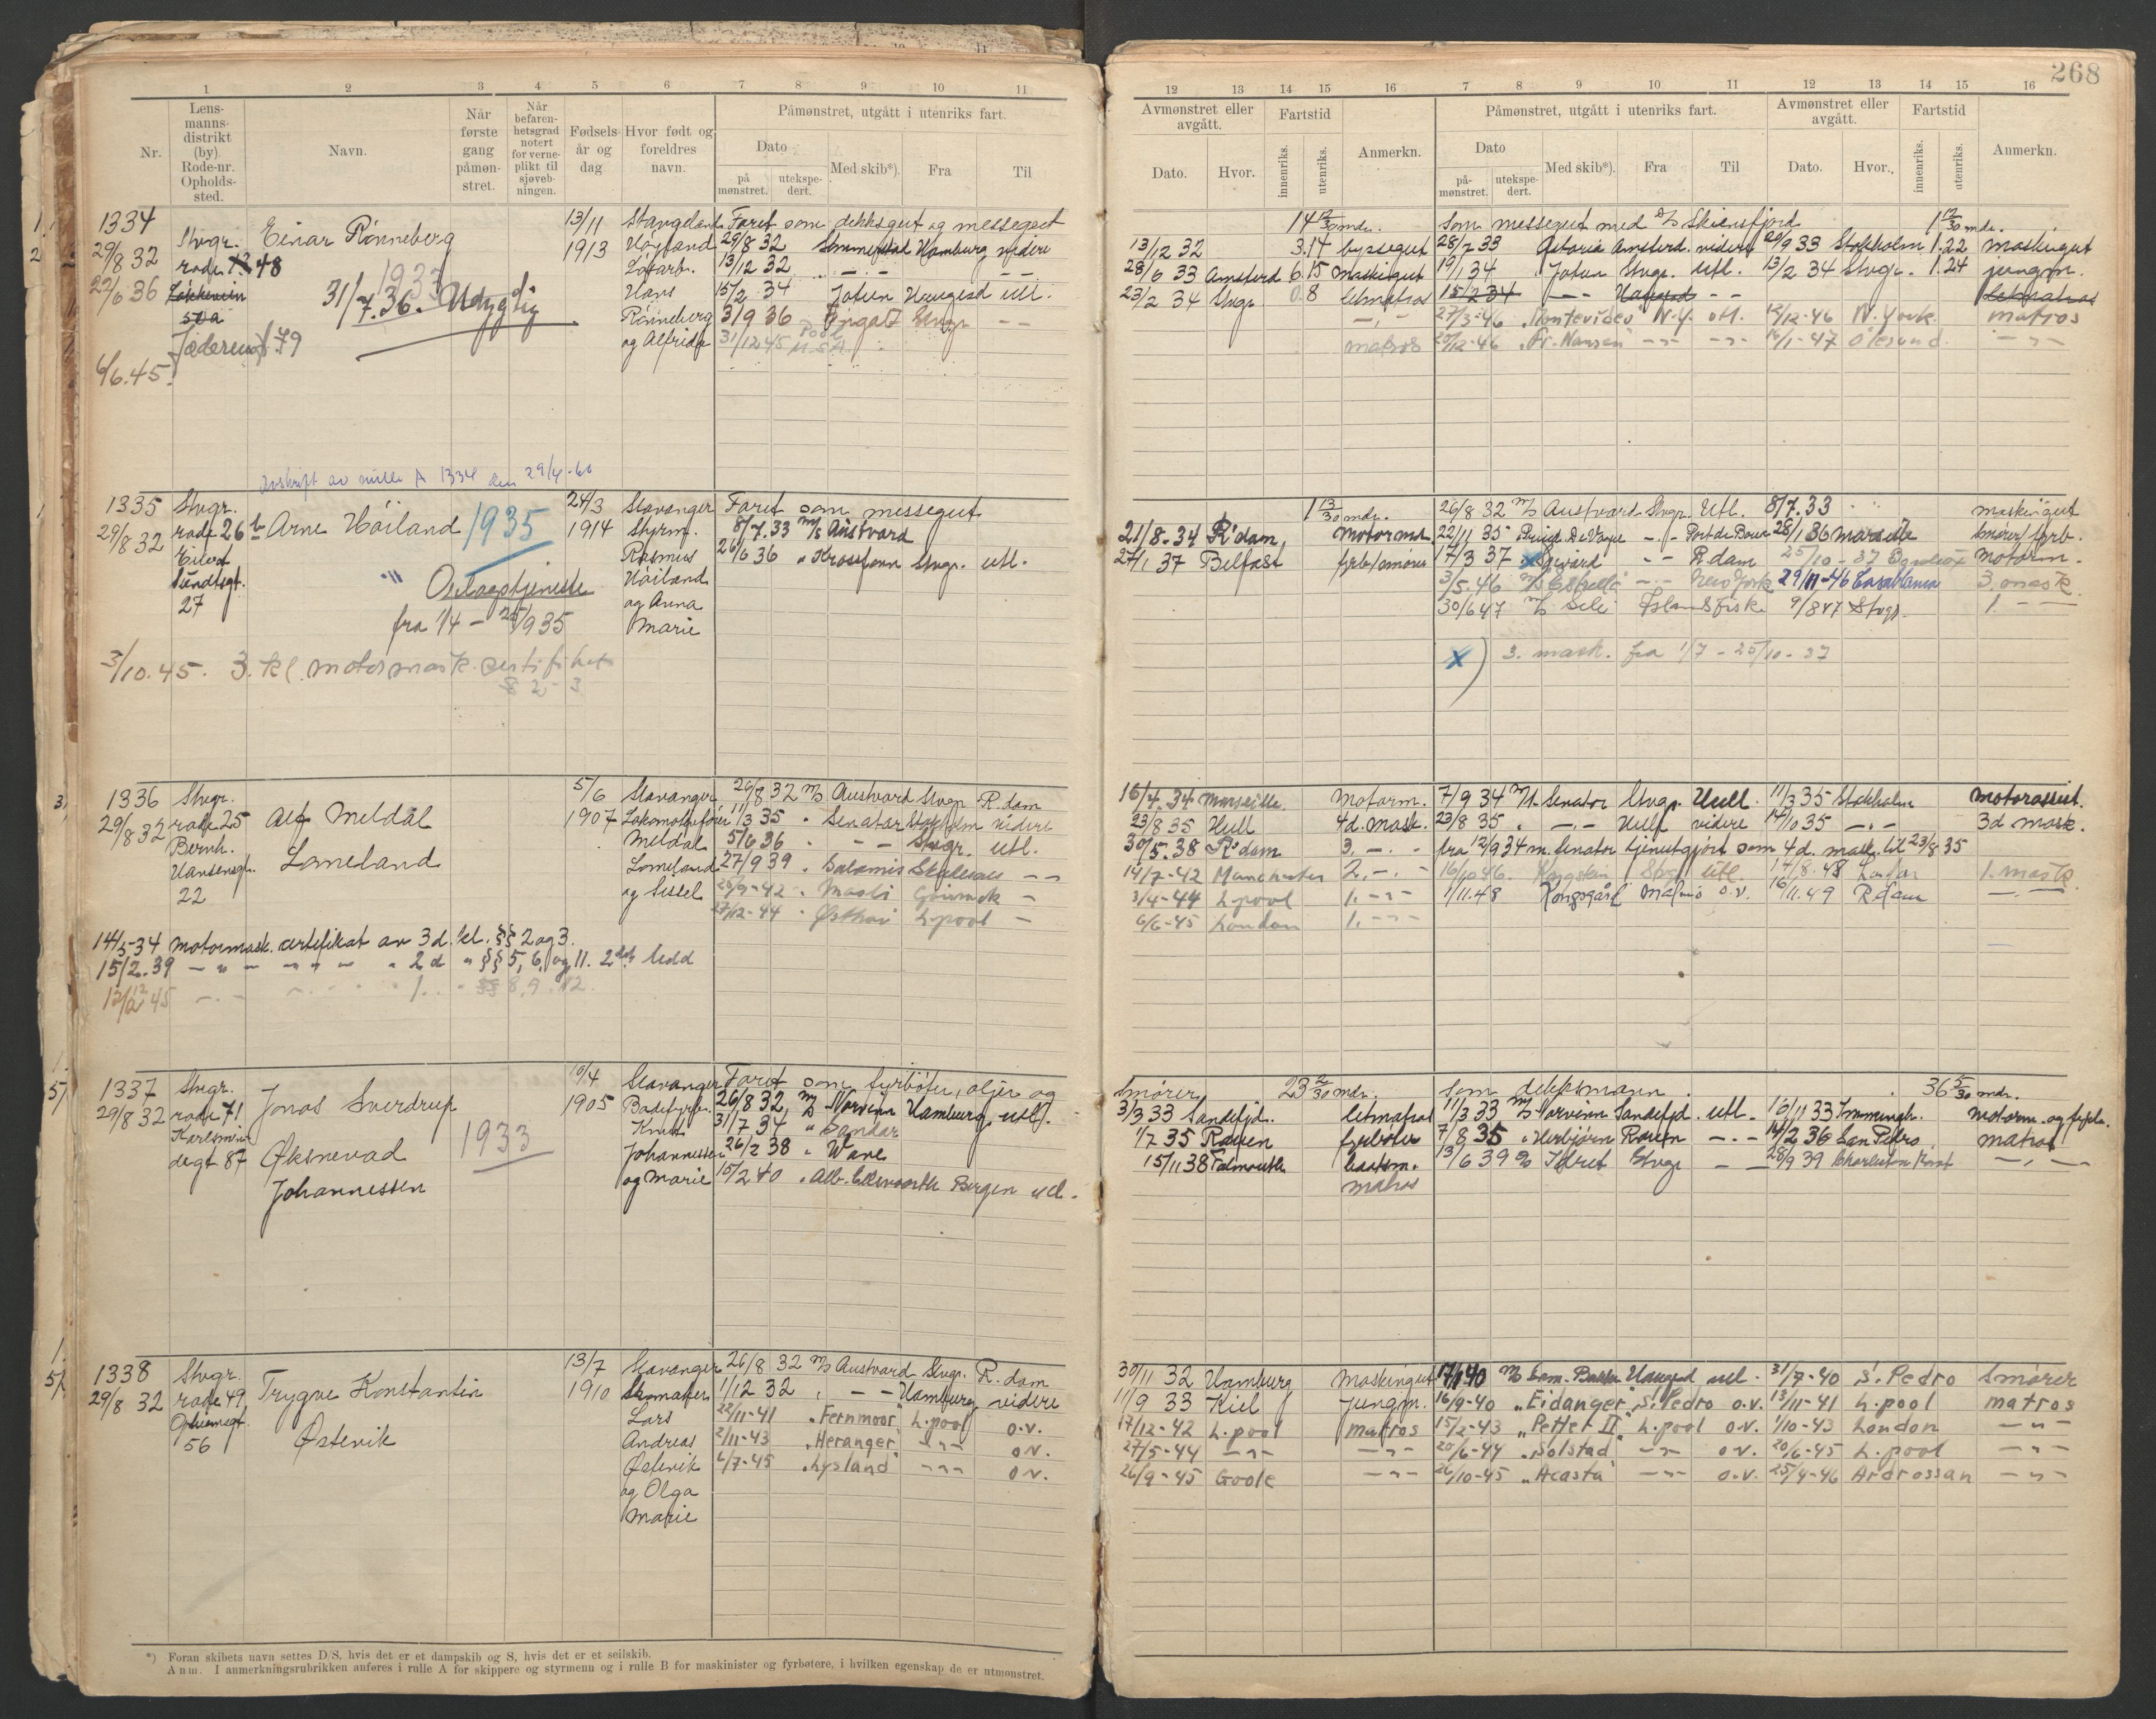 268
1 2 3 4 5 6 7 8 9 10 11
Nr.
Lens-
manns-
distrikt
(by).
Rode-nr.
Opholds-
sted.
Navn.
Når
første
gang
påmøn-
stret.
Når
befaren-
hetsgrad
notert
for verne-
plikt til
sjøveb-
ningen.
Fødsels-
år og
dag
Hvor født og
foreldres
navn.
Påmønstret, utgått i utenriks fart.
Dato
på
mønstret.
utekspe-
dert.
Med skib*).
Fra
Til
12 13 14 15 16 7 8 9 10 11 12 13 14 15 16
Avmønstret eller
avgått.
Dato.
Hvor.
Fartstid
innenriks.
utenriks.
Anmerkn.
Påmønstret, utgått i utenriks fart.
Dato
på-
mønstret.
utekspe-
dert.
Med skib*).
Fra
Til
Avmønstret eller
avgått.
Dato.
Hvor.
Fartstid
innenriks.
utenriks.
Anmerkn.
1334
29/8 32
22/6 36
6/6.45.
Stvgr.
rode 48
Einar Rønneberg
1933
31/7.36. Udygtig
13/11
1913
Stangeland
Høyland
Hans
Rønneberg
og Alfride
Faret som dekksgut og messegut
29/8 32 Sommerstad Hamburg videre
13/12 32 - - -
15/2 34 Jotun Haugesd utl.
3/9 36 Stvgr. - -
31/12 45
14 12/30 mdr.
13/12 32 3.14 byssegut
28/6 33 Amsterd 6.15 maskingut
23/2 34 Stvgr. 0.8 letmatros
matros
Som messegut med D/S Skiensfjord 1 12/30 mdr.
28/7 33 Astoria Amsterd. videre 20/9 33 Stokholm 1.22 maskingut
19/1 34 Jotun Stvgr. Utl. 13/2 34 Stvgr. 1.24 jungm.
15/2 34 - - Haugesd - - letmatros
27/3-46 Montevideo N.Y. utl. 12/12-46 N. York. matros
20/12-46 "Fr. Nansen" - - - - 14/1-47 Ålesund. - " -
Avskrift av rulle A 1334 den 29/4-60
1335
29/8 32
Stvgr.
rode 26
Eilert
Sundtsgt.
27
Arne Höiland 1935
Oplagstjeneste
fra 1/4 - 25/9 35
3/10.45. 3. kl. motormask. certifikat
§ 2 - 3
24/3
1914
Stavanger
Styrm.
Rasmus
Höiland
og Anna
Marie
Faret som messegut
8/7.33 M/S Austvard
26/6 36 " Krossfonn Stvgr. utl.
1 13/30 mdr.
21/8.34 R'dam, Motormd.
27/1 37 Belfast fyrb/smører
26/8 32 M/S Austvard Stvgr. Utl. 8/7.33 maskingut
22/11 35 - . - Port de Bouc 28/1 36 Marseille smører/fyrb.
17/3 37 x - - R.dam 25/10-37 motorm.
3/5.46 - - New York 29/11-46 Casablanca 3. mask.
30/6 47 M/S Sele Islandsfiske 9/8 47 Stvgr. 1. - -
x) 3. mask. fra 1/7 - 25/10-37
1336
29/8 32
Stvgr.
rode 25
Bernh.
Hansensgt.
22
Alf Meldal
Lomeland
5/6
1907
Stavanger
Lokomotivfører
Meldal
Lomeland
og Sissel
26/8 32 M/S Austvard Stvgr. R.dam
11/3 35 " Senator Stokholm videre
5/6 36 " - - Stvgr. utl.
27/9 39 " Salamis - -
28/9-42 " -
27/12-44 " Østhav L.pool -
14/5 34 Motormask. certifikat av 3 d. kl. §§ 2 og 3.
15/2.39 - " - - " - " 2 d " §§ 5, 6, og 11. 2det ledd
12/12 45 - . - 1. . §§ 8, 9. 12.
16/4.34 Marseille. Motorm.
23/8 35 Hull 4d. mask.
30/5.38 R'dam 3. - . -
14/7-42 Manchester 2. - . -
3/4-44 L.pool 1. - " -
6/6-45 London 1. - " -
7/9 34 M/S. Senator Stvgr. Hull. 11/3 35 Stokholm motorassist.
23/8 35 " - . - Hull videre 14/10 35 - . - 3d mask.
fra 12/9 34 m. Senator tjenestgjort som 4d. mask. til 23/8 35
16/10 46. Stvgr. utl. 17/8.48 1. mask.
1/11.48 Kongsgård Malmø o.v. 16/11.49 R.dam - . -
1337
29/8 32
Stvgr.
rode 71
Karlsmin-
degt 87
Jonas Sverdrup
Øksnevad
Johannessen
1933
10/4
1905
Stavanger
Badefyrb.
Knut
Johannessen
og Marie
Faret som fyrbøter, oljer og
26/8 32, M/S Norvinn Hamburg, utl.
31/7 34 " Sandar
26/2 38 " Wave
15/2 40 " Alb. Ellsworth Bergen utl.
Smører, 23 2/30 mdr.
3/3 33 Sandefjd. letmatros
1/7 35 Rouen fyrbøter
15/11 38 Falmouth baatsm.
matros
som dekksmann 36 5/30 mdr.
11/3 33 M/S Norvinn Sandefjd. utl. 16/11 33 Immingh. motorm. og fyrb.
7/8 35 " Herbjørn Rouen - . - 14/2 36 San Pedro matros
13/6 39 Stvgr. - - 28/9 39 Charleston - . -
1338
29/8 32
Stvgr.
rode 49
56
Trygve Konstantin
Østevik
13/7
1910
Stavanger
Skomaker
Lars
Andreas
Østevik
og Olga
Marie
26/8 32 M/S Austvard Stvgr. R.dam
1/12 32 " - - Hamburg videre
22/11-41 "Fernmoor" L.pool o.v.
2/11-43 "Heranger" - " - o.v.
6/7-45 "Lysland" - " - o.v.
30/11 32 Hamburg Maskingut
11/9 33 Kiel Jungm.
17/12-42 L.pool matros
27/5-44 - " - - " -
26/9-45 Goole - " -
17/1 40 Haugesd utl. 31/7-40 S. Pedro Smører
16/9-40 "Eidanger" S. Pedro o.v. 13/11-41 L.pool matros
15/2-43 "Petter II" L.pool o.v. 1/10-43 London - " -
20/6-44 "Solstad" - " - o.v. 20/6-45 L.pool - " -
26/10-45 "Acasta" - " - o.v. 25/4-46 Ardrossan - " -
*) Foran skibets navn settes D/S, hvis det er et dampskib og S, hvis det er et seilskib.
Anm. I anmerkningsrubrikken anføres i rulle A for skippere og styrmenn og i rulle B for maskinister og fyrbøtere, i hvilken egenskap de er utmønstret.